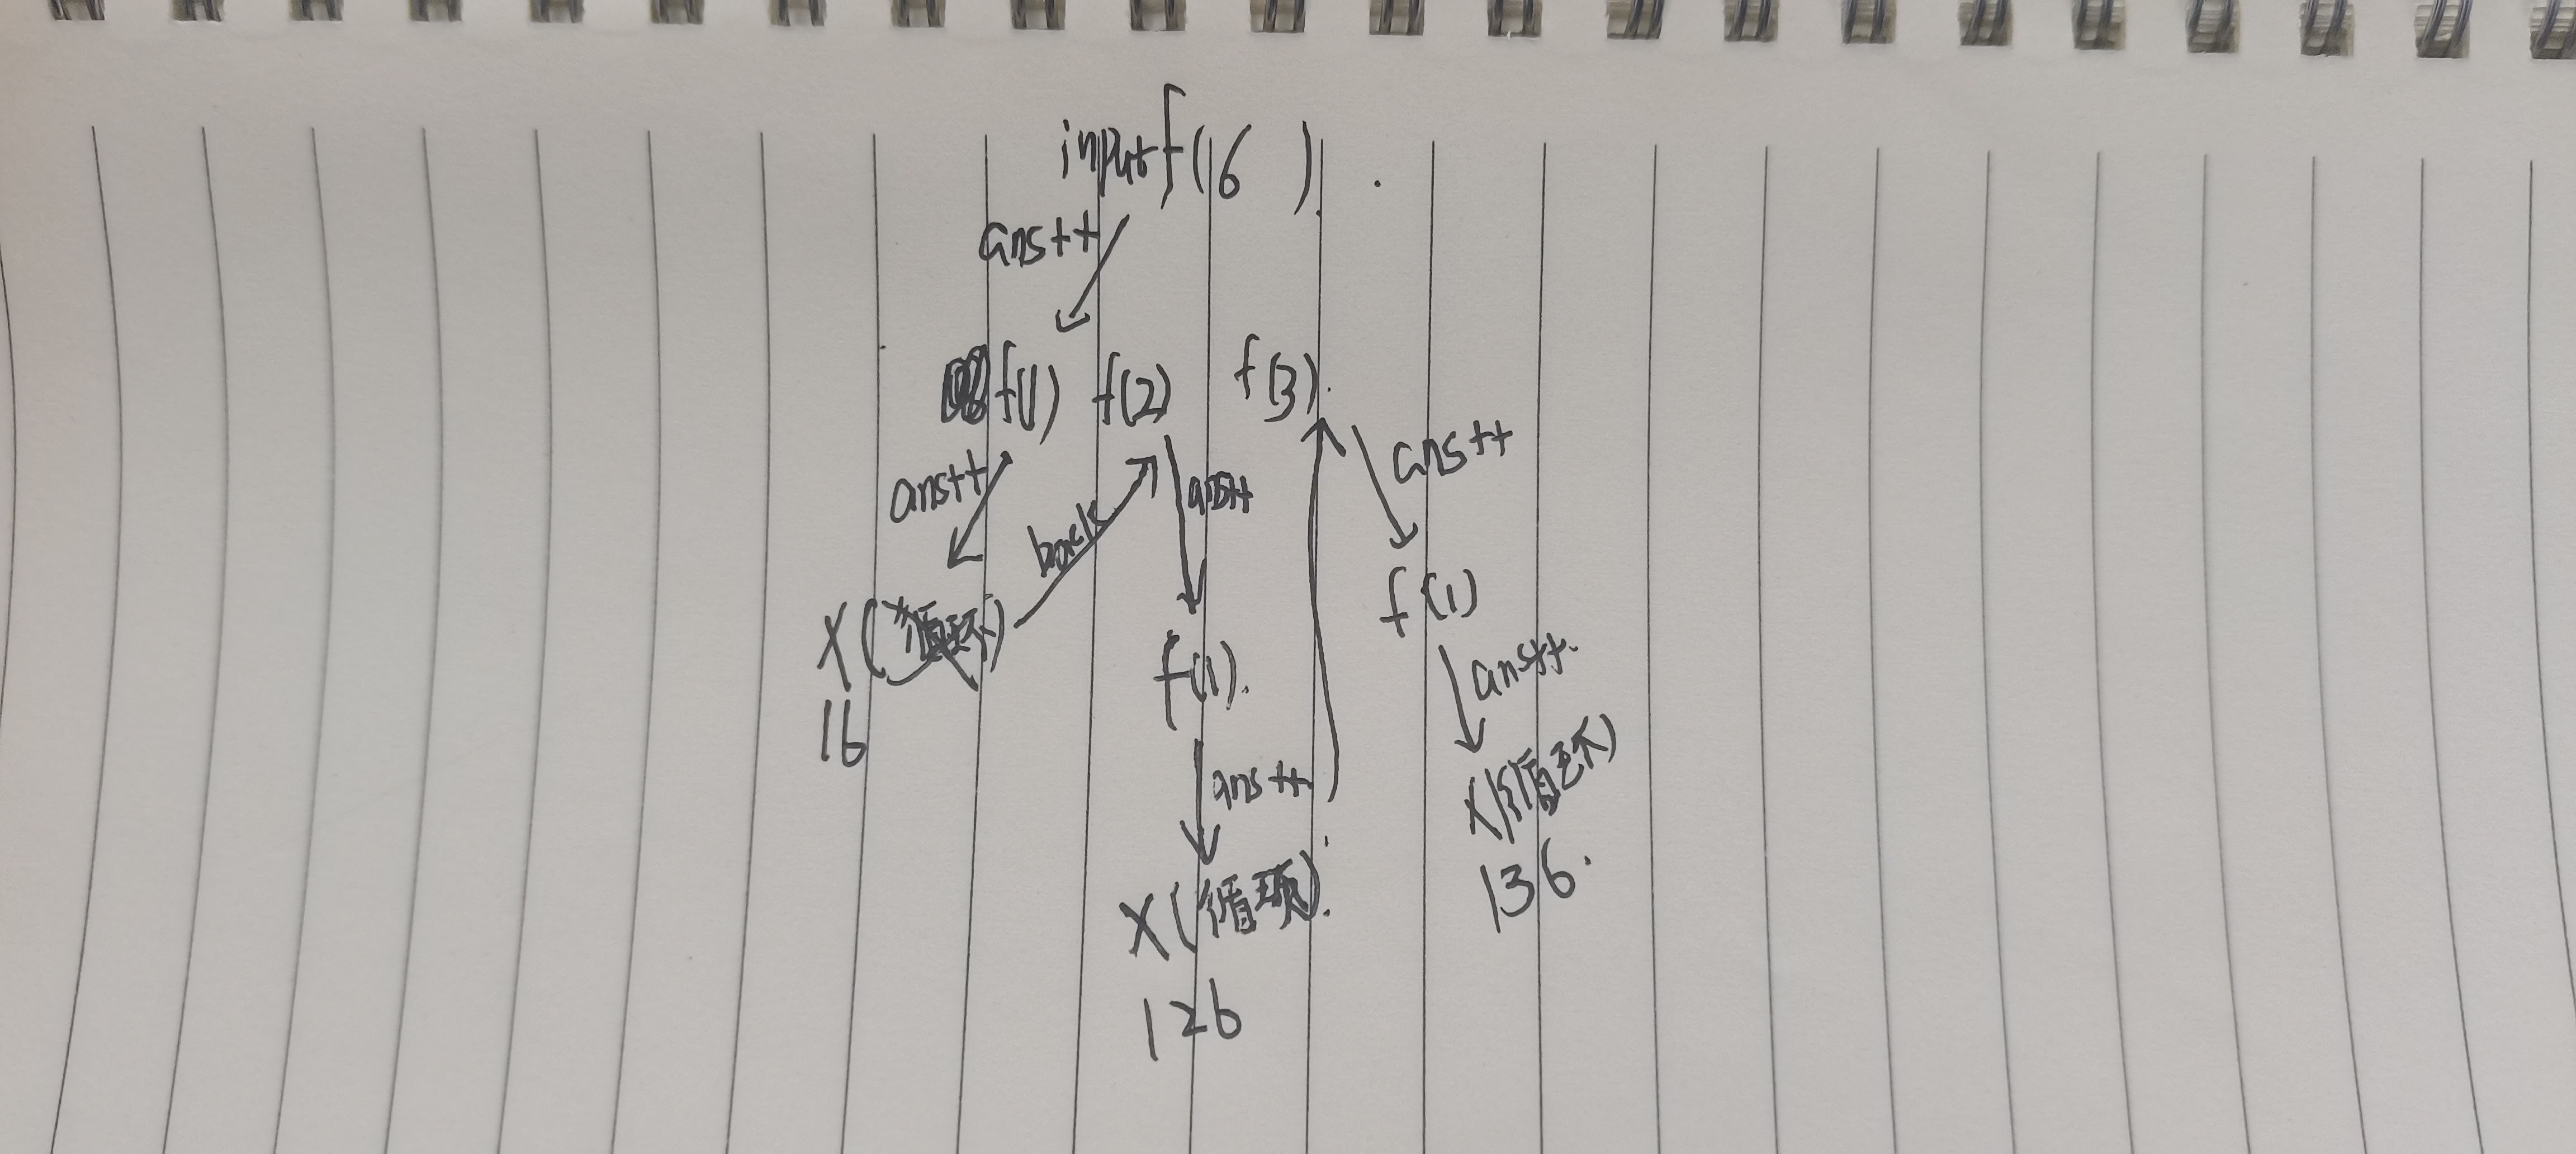 input f(6 )
ans++
f(1) f(2) f(3)
ans++ back ans++ ans++
X(循环) f(1) f(1)
16
ans++ ans++
X(循环) X(循环)
126 136